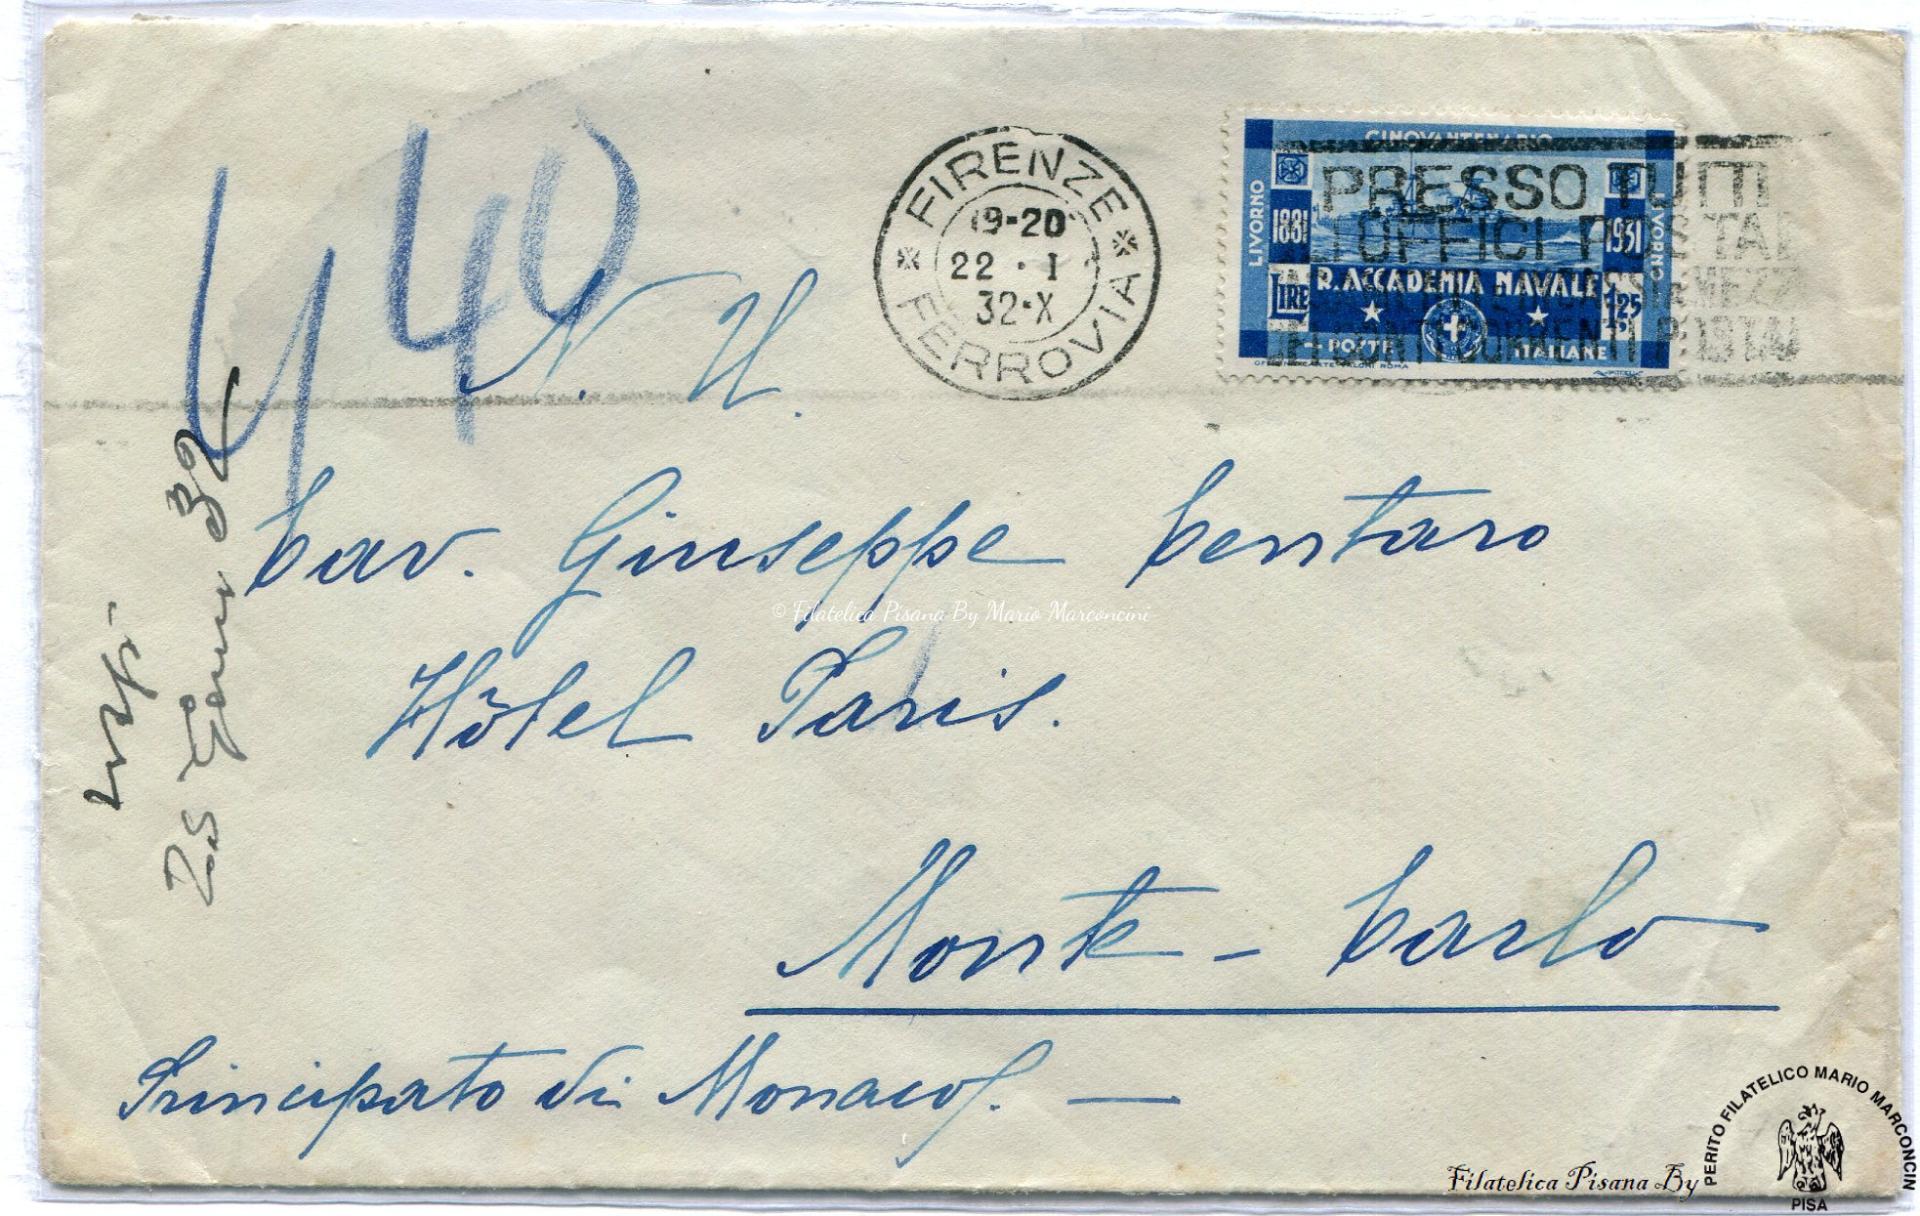 440
FIRENZE
19-20
22 · I
32·X
FERROVIA
CINQVANTENARIO
LIVORNO
LIVORNO
1881
1931
R. ACCADEMIA NAVALE
LIRE
1,25
POSTE
ITALIANE
PRESSO TUTTI
UFFICI POSTAL
CONTI CORRENTI POSTAL
N. H.
Cav. Giuseppe Centaro
Hôtel Paris.
Monte-Carlo
Principato di Monaco. —
25 32
© Filatelica Pisana By Mario Marconcini
Filatelica Pisana By
PERITO FILATELICO MARIO MARCONCIN
PISA